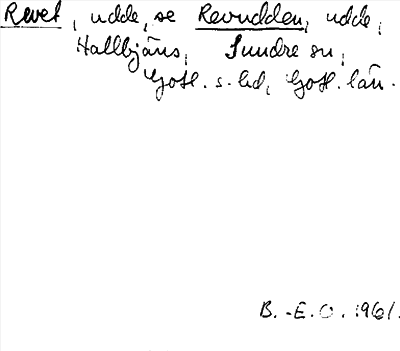 Revet, udde, se Revudden, udde,
Hallbjäns, Sundre sn,
Gotl. s. hd, Gotl. län.
B.-E.O. 1961.